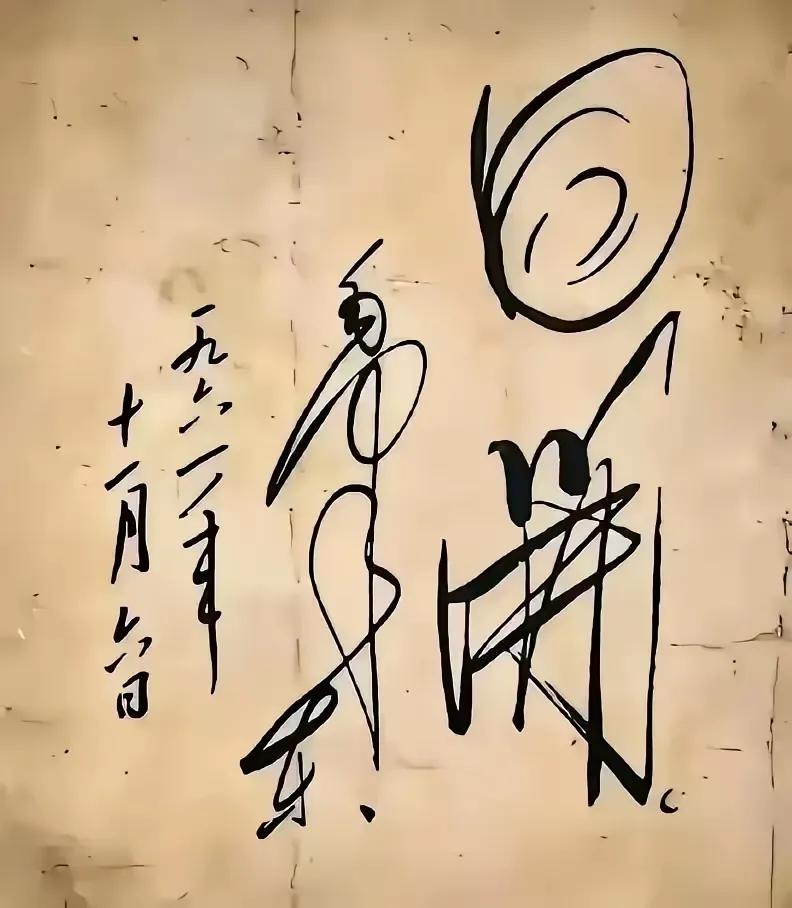 回
毛泽东
一九六一年
十一月六日